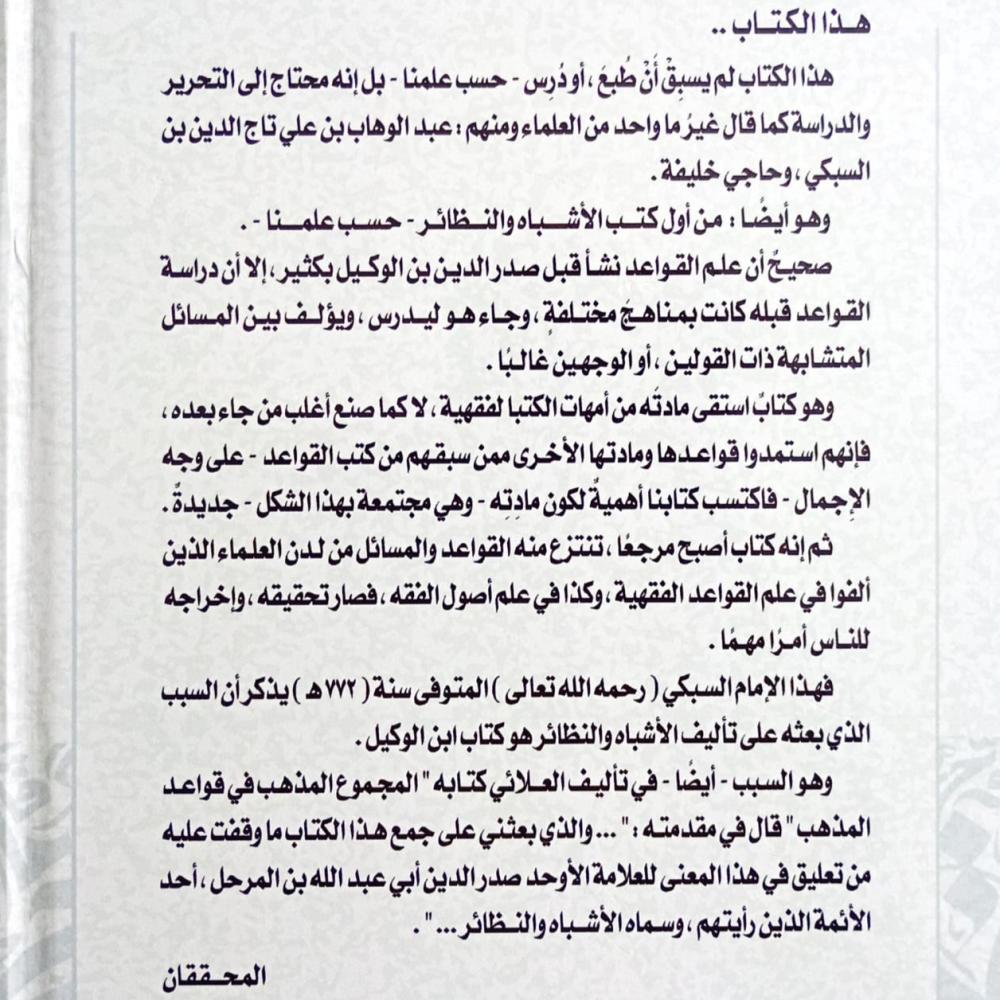 هذا الكتاب ..
هذا الكتاب لم يسبِقْ أَنْ طُبعَ ، أو دُرِس - حسب علمنا - بل إنه محتاج إلى التحرير
والدراسة كما قال غيرُ ما واحد من العلماء ومنهم : عبد الوهاب بن علي تاج الدين بن
السبكي ، وحاجي خليفة .
وهو أيضًا : من أول كتب الأشباه والنظائر - حسب علمنا - .
صحيحٌ أن علم القواعد نشأ قبل صدر الدين بن الوكيل بكثير ، إلا أن دراسة
القواعد قبله كانت بمناهجَ مختلفةٍ ، وجاء هو ليدرس ، ويؤلف بين المسائل
المتشابهة ذات القولين ، أو الوجهين غالبًا .
وهو كتابٌ استقى مادتُه من أمهات الكتبا لفقهية ، لا كما صنع أغلب من جاء بعده ،
فإنهم استمدوا قواعدها ومادتها الأخرى ممن سبقهم من كتب القواعد - على وجه
الإجمال - فاكتسب كتابنا أهميةً لكون مادتِه - وهي مجتمعة بهذا الشكل - جديدةً .
ثم إنه كتاب أصبح مرجعًا ، تنتزع منه القواعد والمسائل من لدن العلماء الذين
ألفوا في علم القواعد الفقهية ، وكذا في علم أصول الفقه ، فصار تحقيقه ، وإخراجه
للناس أمرًا مهمًا .
فهذا الإمام السبكي ( رحمه الله تعالى ) المتوفى سنة ( ٧٧٢ هـ ) يذكر أن السبب
الذي بعثه على تأليف الأشباه والنظائر هو كتاب ابن الوكيل .
وهو السبب - أيضًا - في تأليف العلائي كتابه " المجموع المذهب في قواعد
المذهب " قال في مقدمته : " ... والذي بعثني على جمع هذا الكتاب ما وقفت عليه
من تعليق في هذا المعنى للعلامة الأوحد صدر الدين أبي عبد الله بن المرحل ، أحد
الأئمة الذين رأيتهم ، وسماه الأشباه والنظائر ... " .
المحققان